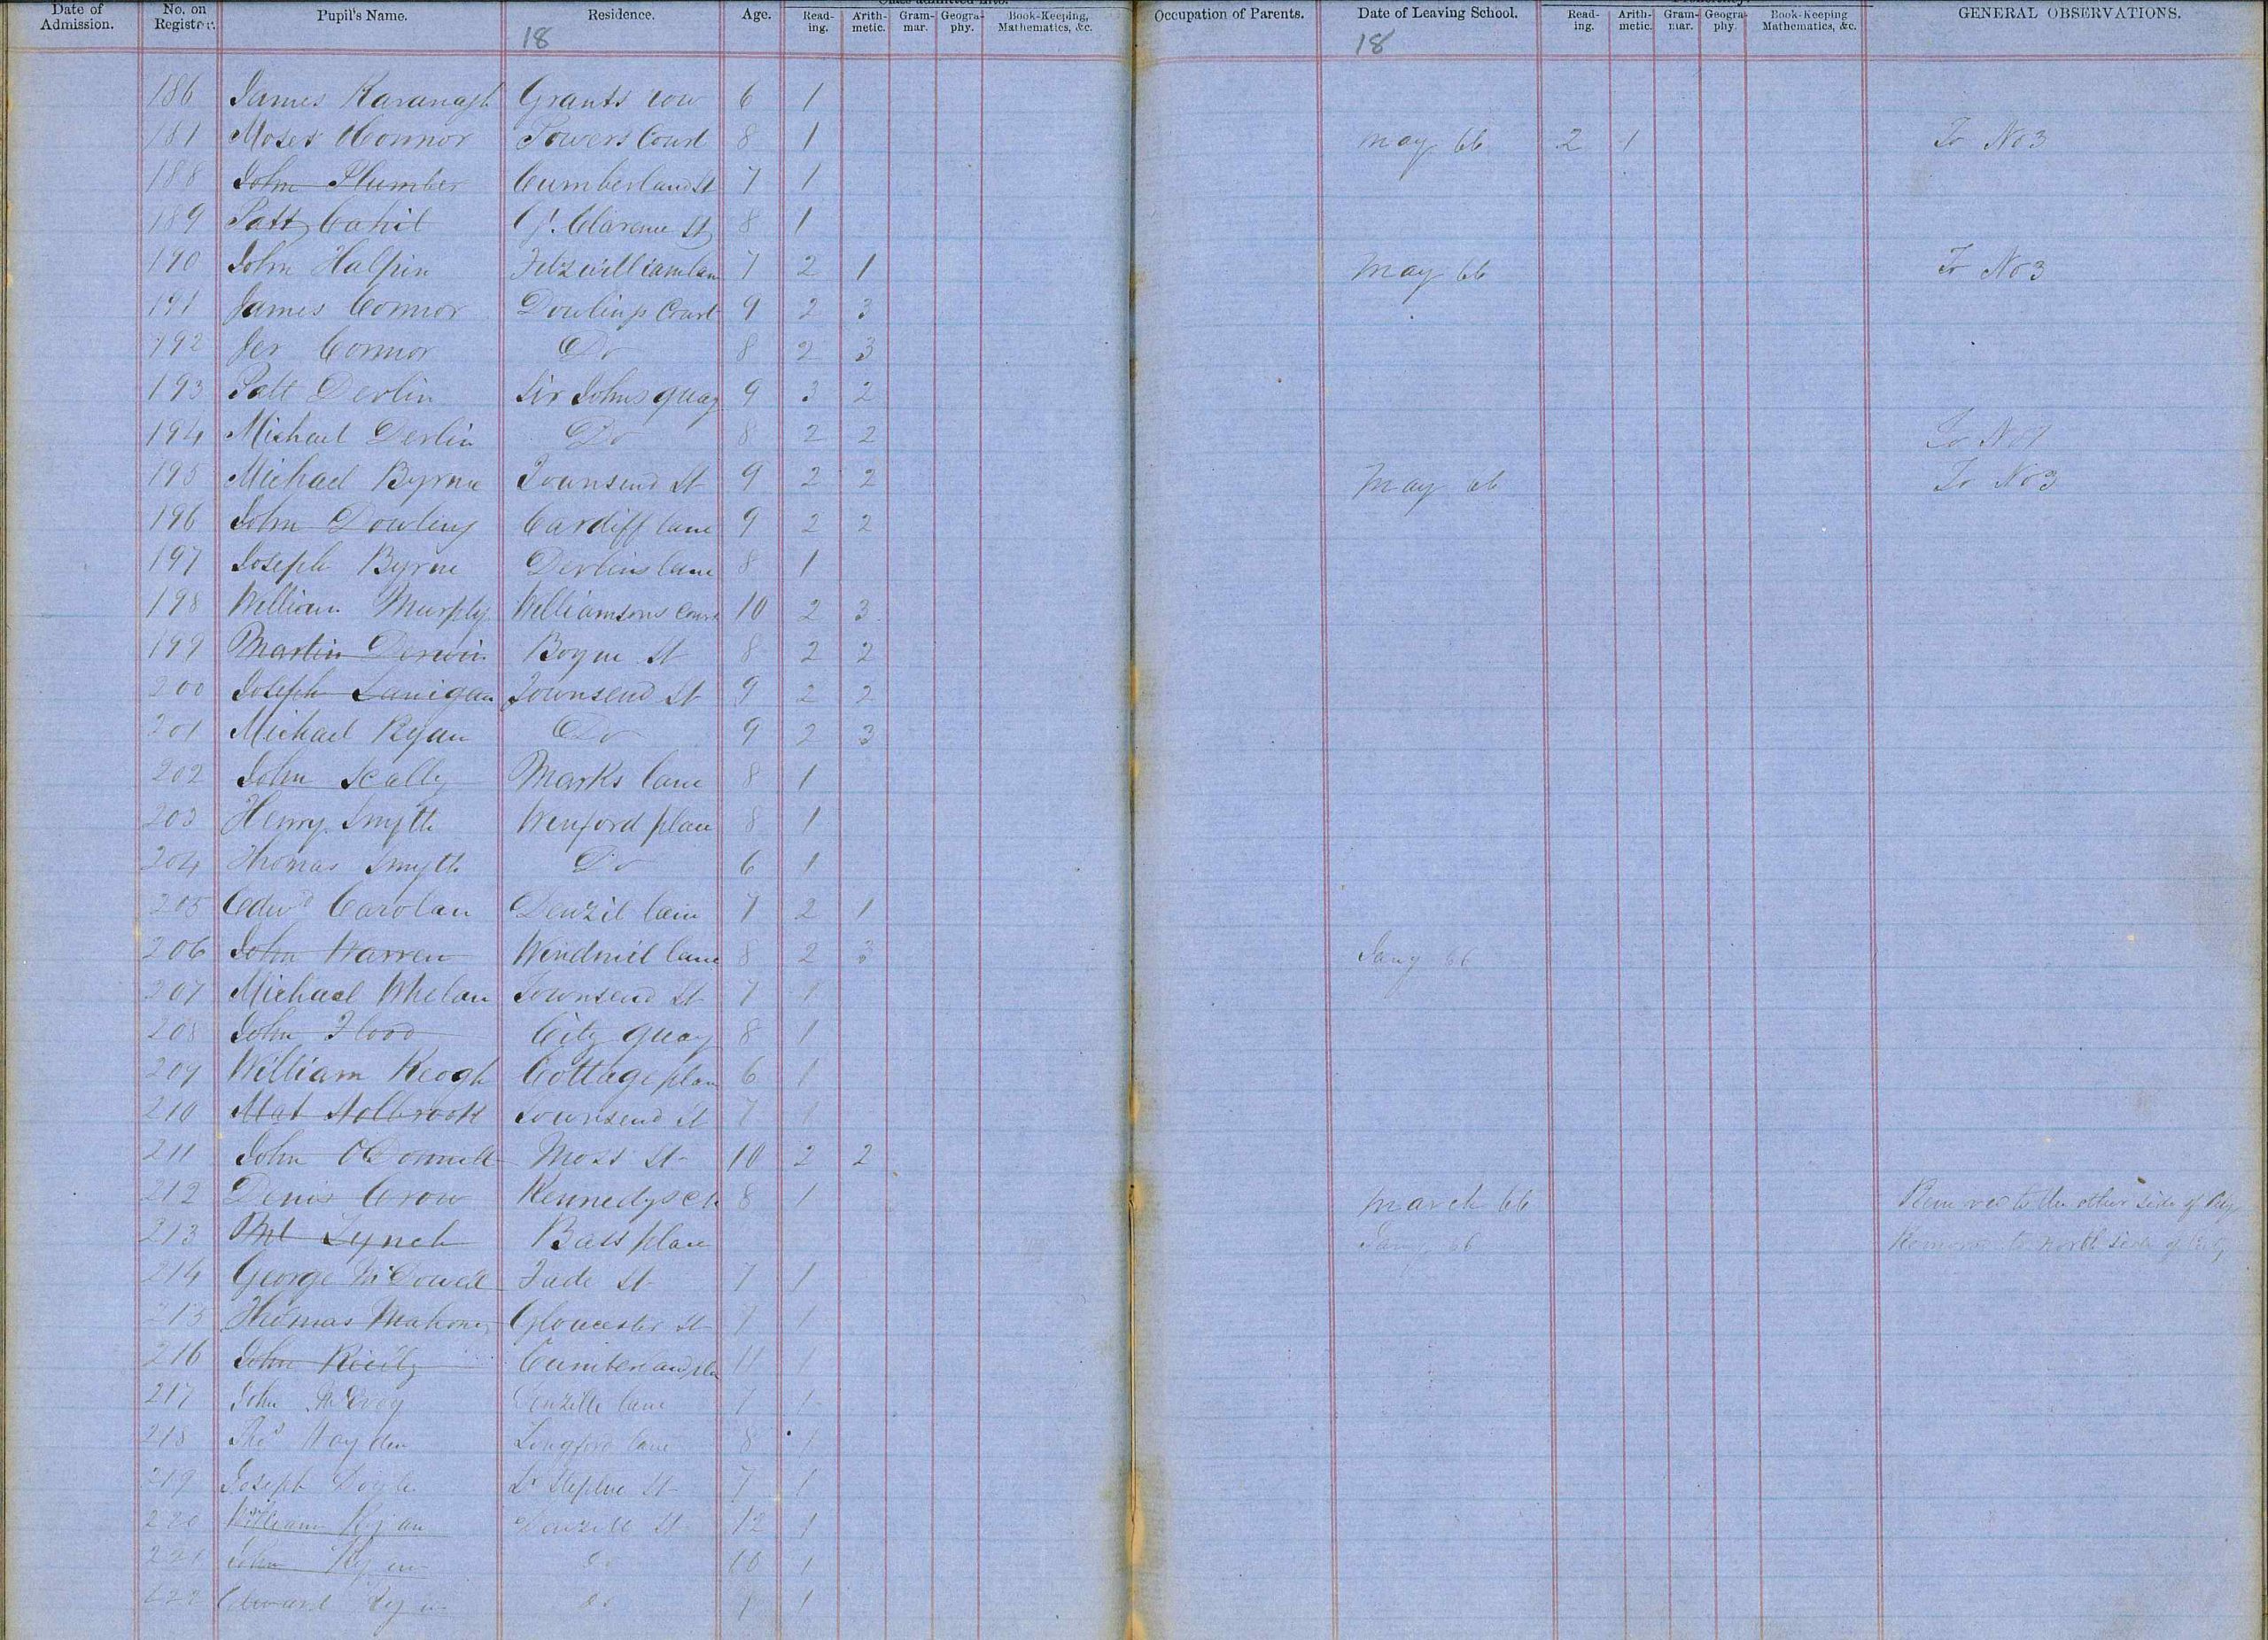 Date of Admission. No. on Register. Pupil's Name. Residence. Age. Read-ing. Arith-metic. Gram-mar. Geogra-phy. Book-Keeping, Mathematics, &c. Occupation of Parents. Date of Leaving School. Read-ing. Arith-metic. Gram-mar. Geogra-phy. Book-Keeping Mathematics, &c. GENERAL OBSERVATIONS.
18 18
186 James Kavanagh Grants row 6 1
187 Moses OConnor Powers Court 8 1 may 66 2 1 To No 3
188 John Plumber Cumberland St 7 1
189 Patt Cahil Gt. Clarence St 8 1
190 John Halpin Fitzwilliam lan 7 2 1 May 66 To No 3
191 James Connor Dowlings Court 9 2 3
192 Jer Connor Do 8 2 3
193 Patt Devlin Sir Johns quay 9 3 2
194 Michael Devlin Do 8 2 2 To No 1
195 Michael Byrne Townsend St 9 2 2 May 66 To No 3
196 John Dowling Cardiff lane 9 2 2
197 Joseph Byrne Devlins lane 8 1
198 William Murphy Williamsons Court 10 2 3
199 Martin Derwin Boyne St 8 2 2
200 Joseph Lanigan Townsend St 9 2 2
201 Michael Ryan Do 9 2 3
202 John Scally Marks lane 8 1
203 Henry Smyth Wenford place 8 1
204 Thomas Smyth Do 6 1
205 Edwd Carolan Denzil lane 7 2 1
206 John Warren Windmil lane 8 2 3 Jany 66
207 Michael Whelan Townsend St 7 1
208 John Flood City quay 8 1
209 William Keogh Cottage plan 6 1
210 Mat Holbrook Townsend St 7 1
211 John ODonnell Moss St 10 2 2
212 Denis Crow Kennedys Ct 8 1 March 66 Removed to the other side of City
213 Ml Lynch Bass place Jany 66 Removed to north side of City
214 George McDowell Fade St 7 1
215 Thomas Mahony Gloucester St 7 1
216 John Reilly Cumberland pla 11 1
217 John McEvoy Denzille lane 7 1
218 Thos Hayden Longford lane 8 1
219 Joseph Doyle Lr Stephen St 7 1
220 William Ryan Denzille St 12 1
221 John Ryan Do 10 1
222 Edward Ryan do 1